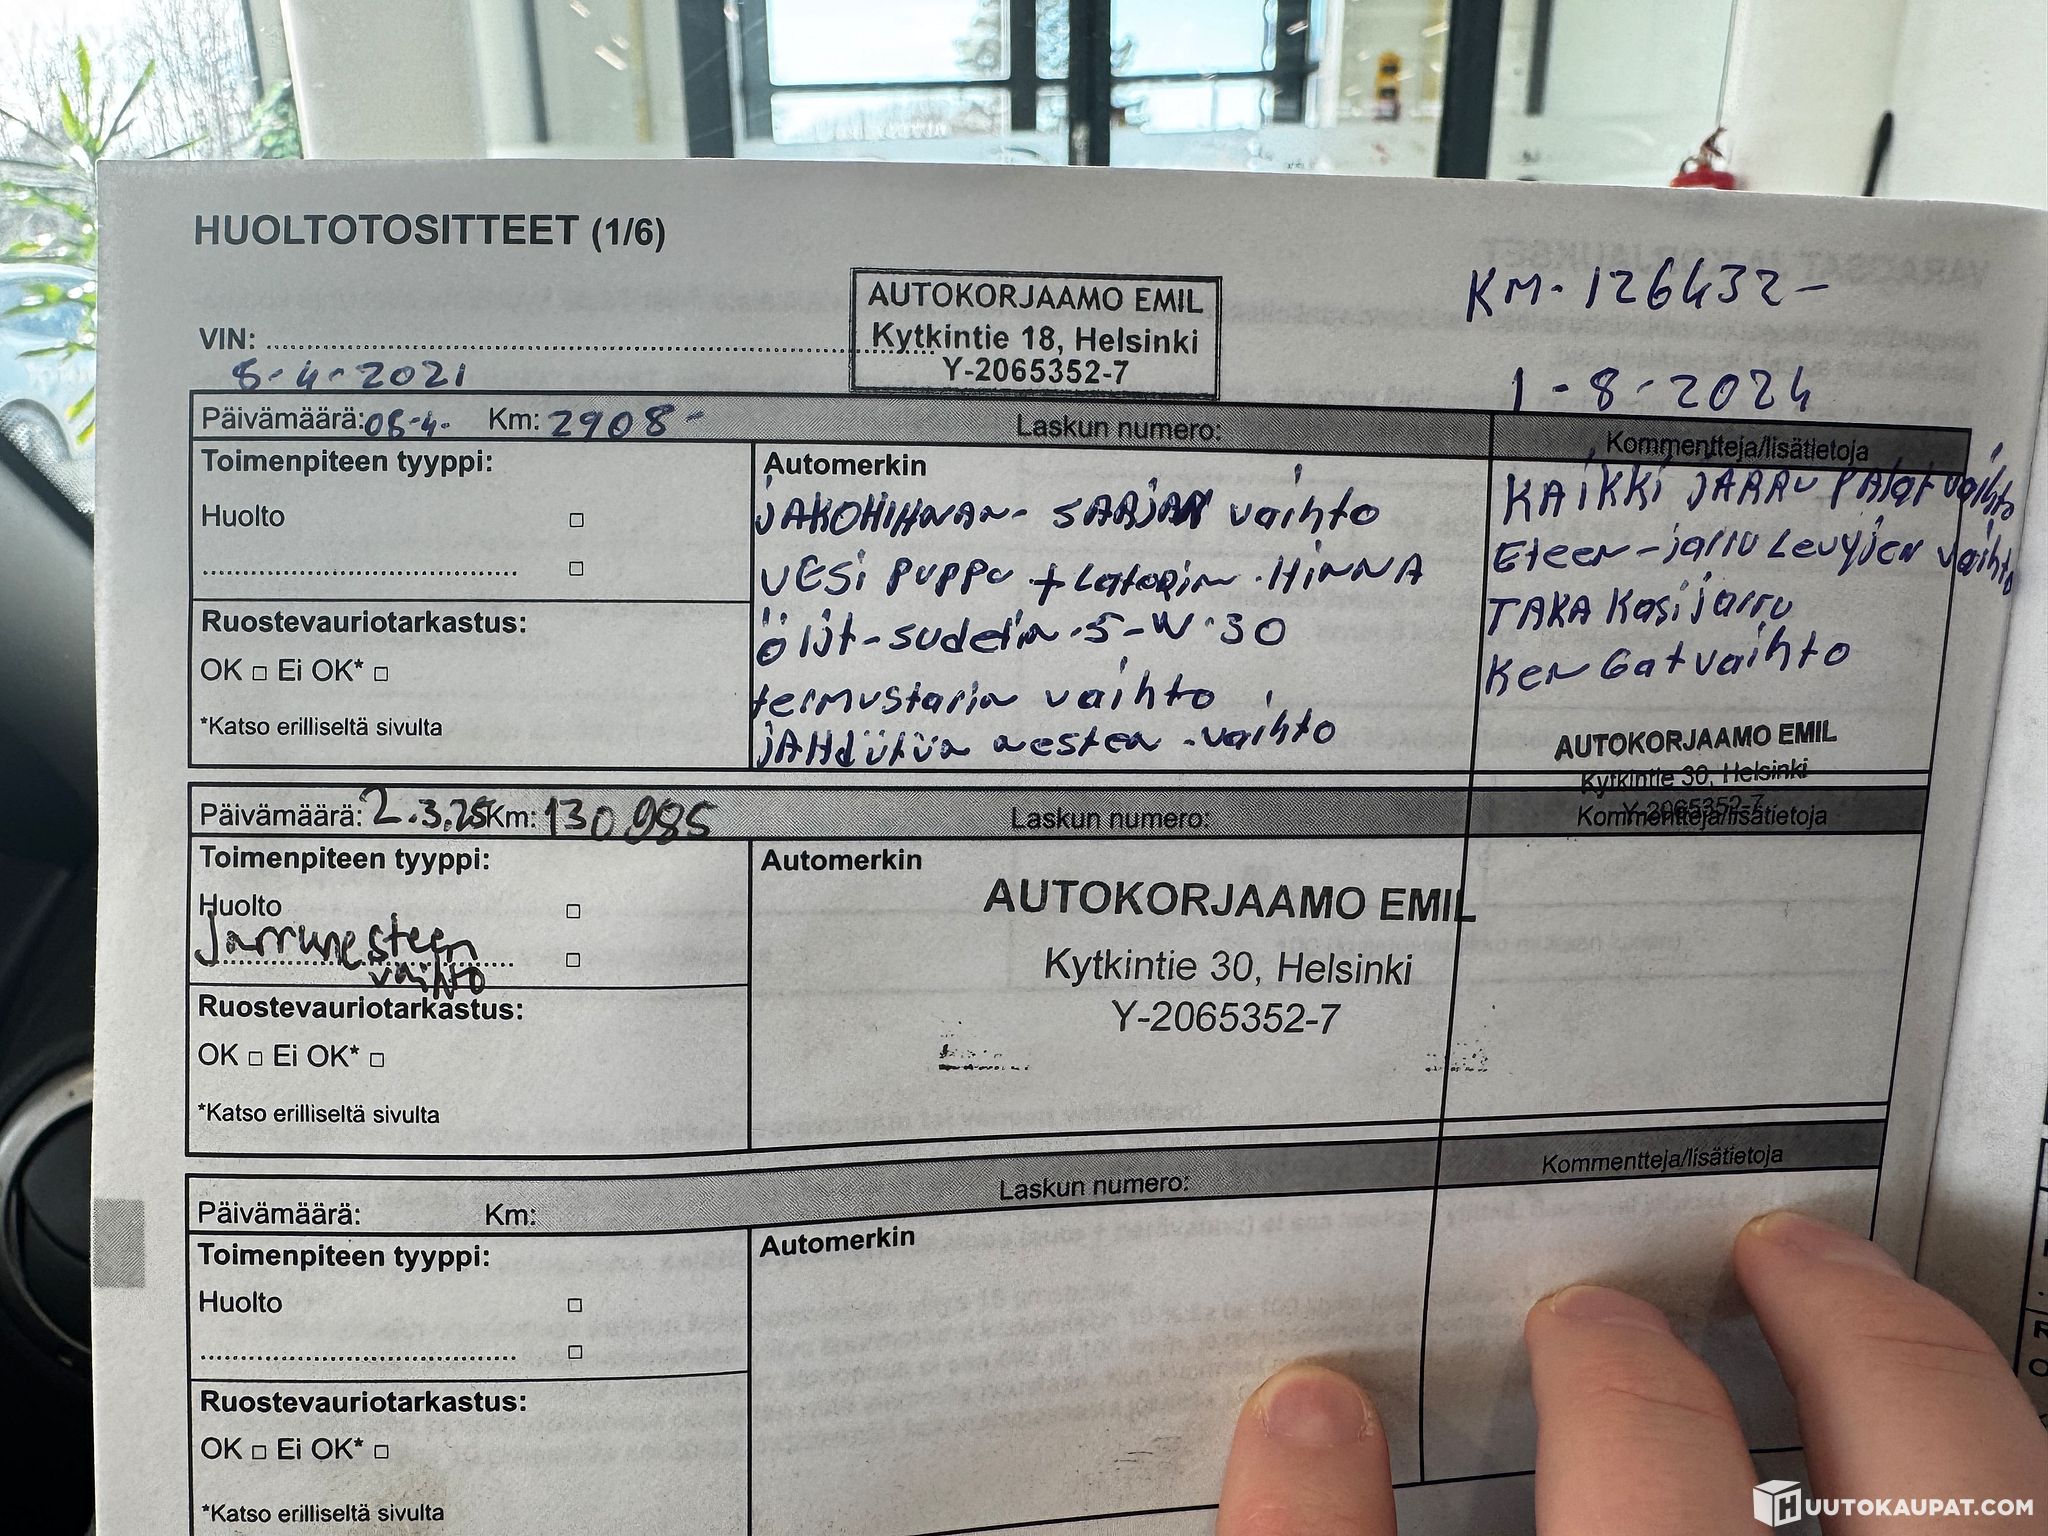 HUOLTOTOSITTEET (1/6)
AUTOKORJAAMO EMIL
Kytkintie 18, Helsinki
Y-2065352-7
KM. 126432-
1-8-2024
VIN:
8-4-2021
Päivämäärä: 08-4. Km: 2908- Laskun numero: Kommentteja/lisätietoja
Toimenpiteen tyyppi:
Huolto
Ruostevauriotarkastus:
OK □ Ei OK* □
*Katso erilliseltä sivulta
Automerkin
jAKOHIHNAN- SARJAN vaihto
VESi PuPPu + LatoRin. HiNNA
öljt-sudetin.5-W.30
termustarin vaihto
jAHdütün nesten.vaihto
KAiKKi JARRU PAlatvaihto
Eteen-jarru Levyjen vaihto
TAKA Kasijarru
Ken Gatvaihto
AUTOKORJAAMO EMIL
Kytkintie 30, Helsinki
Y-2065352-7
Päivämäärä: 2.3.25 Km: 130985 Laskun numero: Kommentteja/lisätietoja
Toimenpiteen tyyppi:
Huolto
Jarrunesteen
vaihto
Ruostevauriotarkastus:
OK □ Ei OK* □
*Katso erilliseltä sivulta
Automerkin
AUTOKORJAAMO EMIL
Kytkintie 30, Helsinki
Y-2065352-7
Päivämäärä: Km: Laskun numero: Kommentteja/lisätietoja
Toimenpiteen tyyppi:
Huolto
Ruostevauriotarkastus:
OK □ Ei OK* □
*Katso erilliseltä sivulta
Automerkin
HUUTOKAUPAT.COM